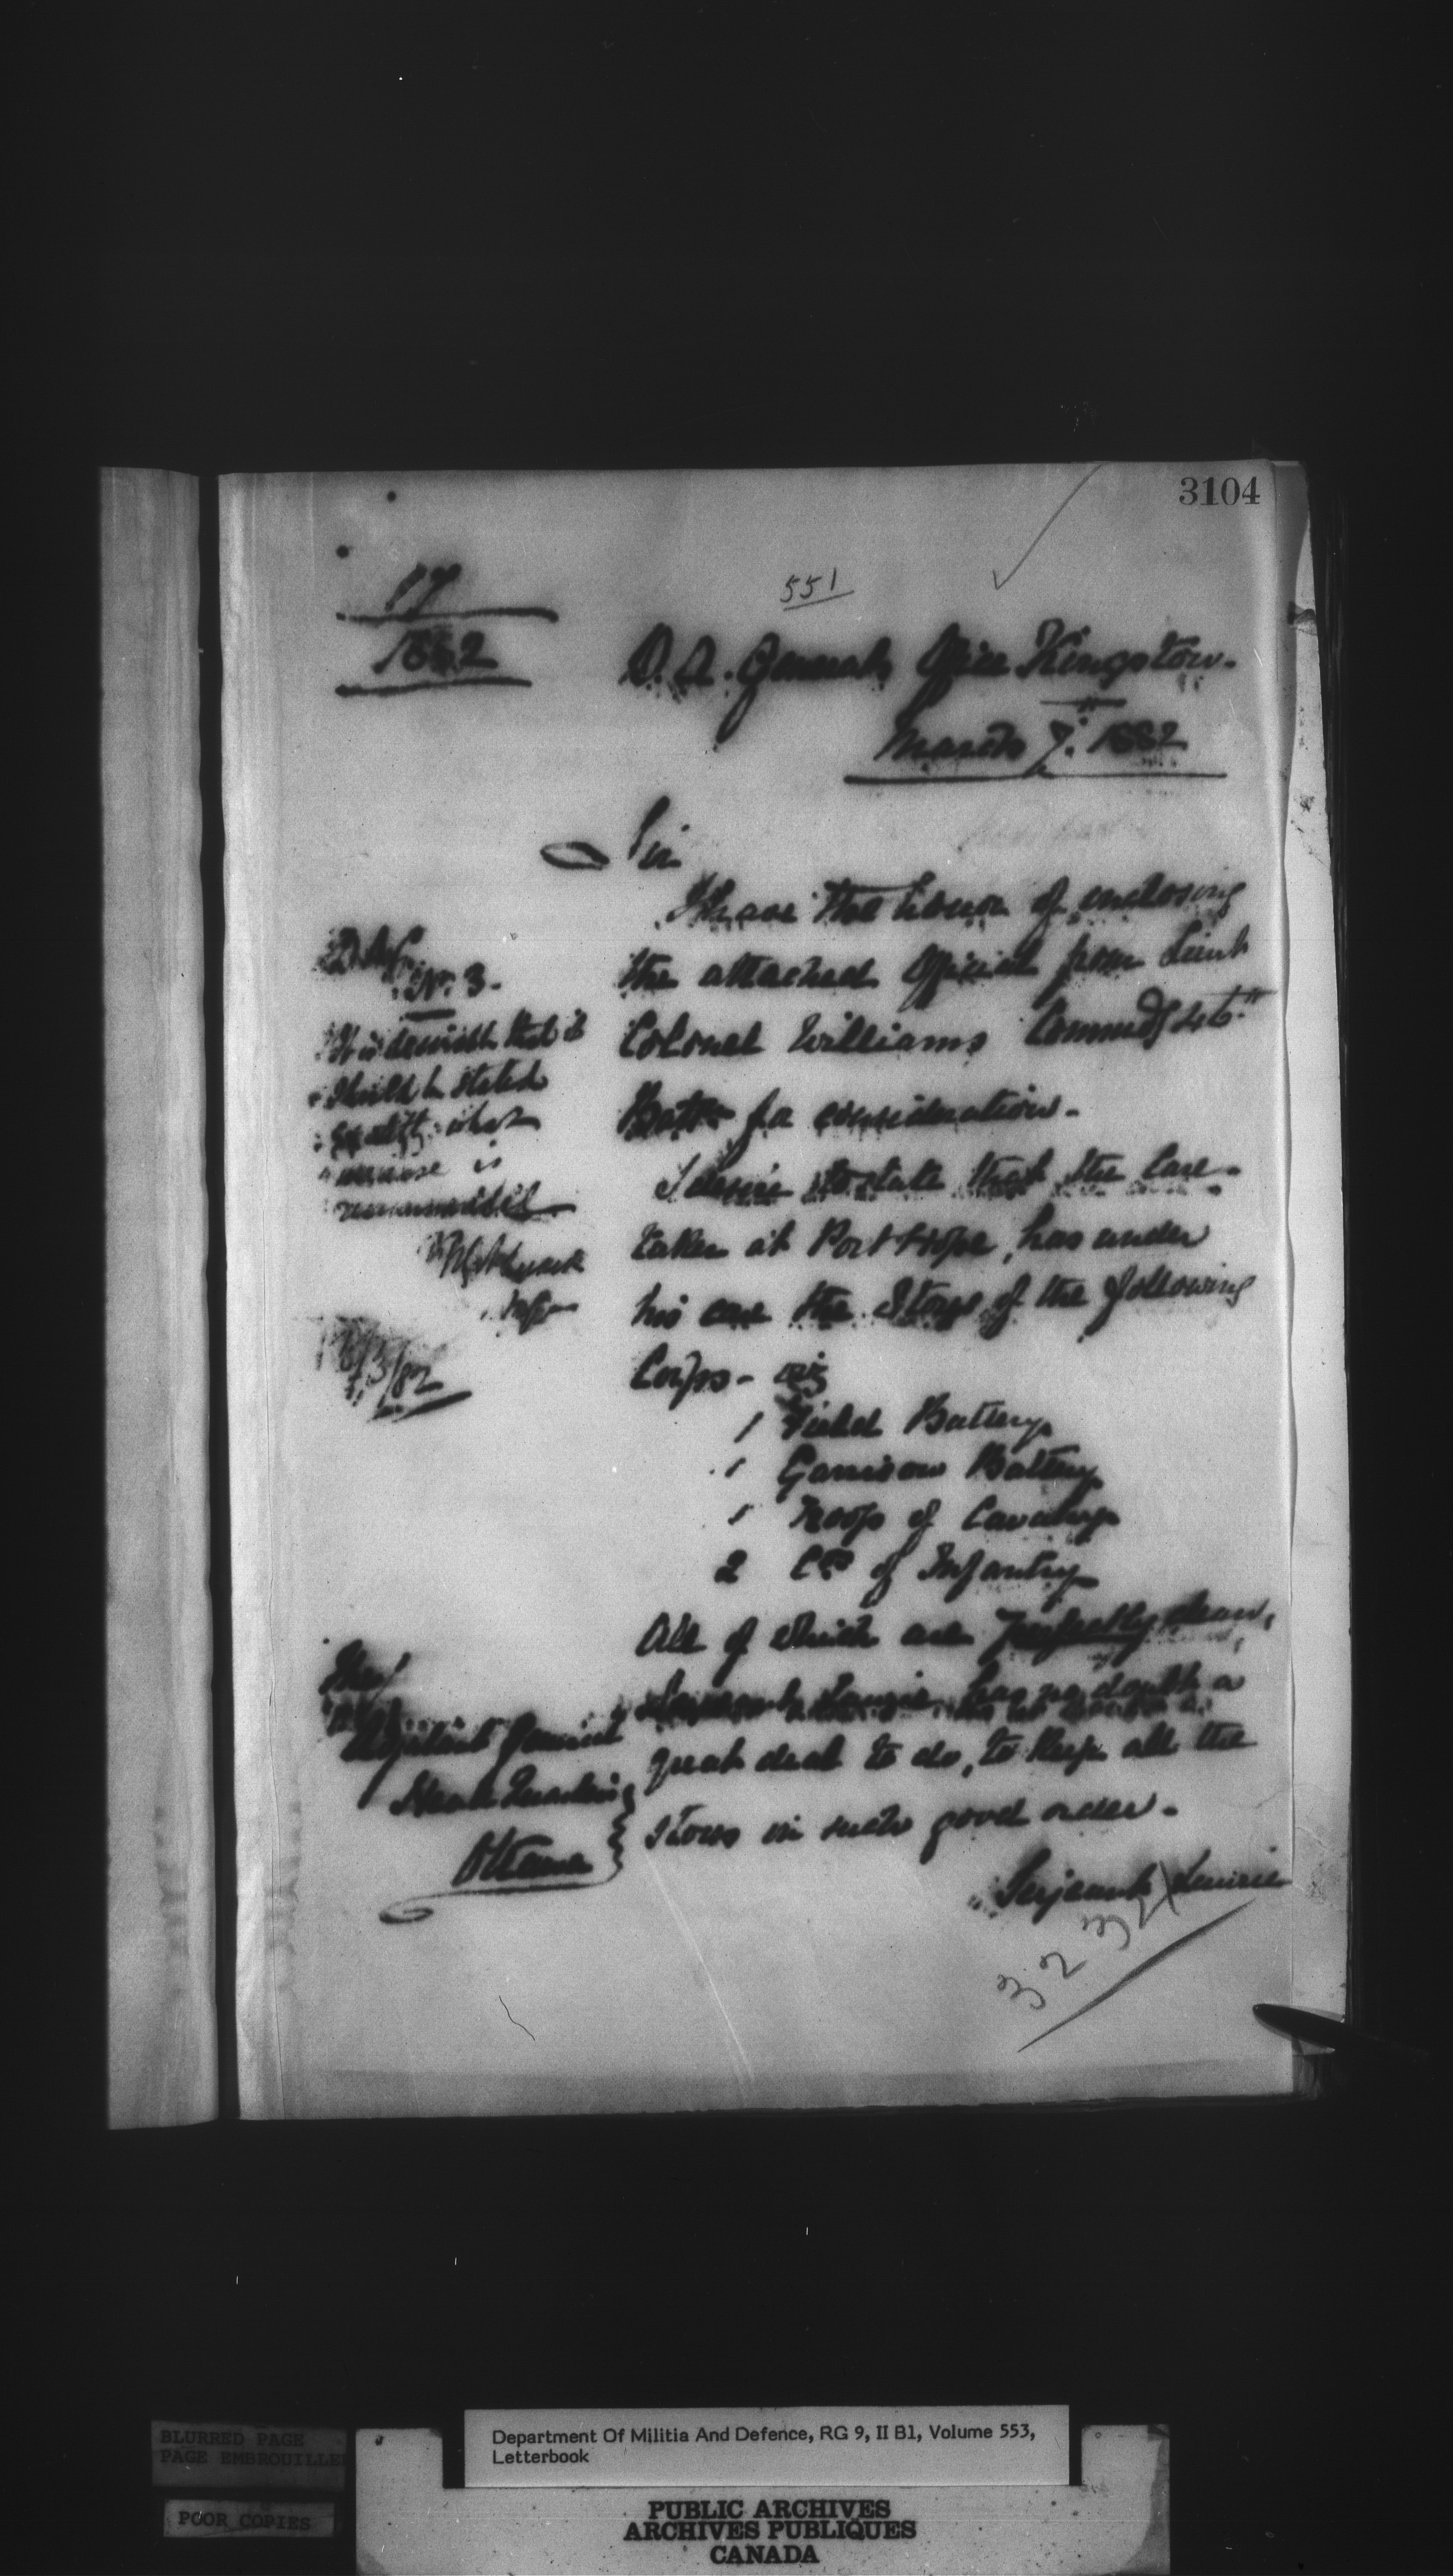 3104
551
17
1882
D. A. Generals Office Kingston.
March 7th 1882
Sir
I have the honor of enclosing
the attached Official from Lieut
Colonel Williams Commdg 46th
Battn for consideration.
I desire to state that the Care-
taker at Port Hope, has under
his care the Stores of the following
Corps - viz
1 Field Battery
1 Garrison Battery
1 Troop of Cavalry
2 Cos of Infantry
All of which are perfectly clean,
has no doubt a
great deal to do, to keep all the
stores in such good order.
Serjeant
D.A.G.
No. 3.
It is desirable that it
should be stated
exactly what
increase is
recommended
8/3/82
The
Adjutant General
Head Quarters
Ottawa
3232
BLURRED PAGE
PAGE EMBROUILLEE
POOR COPIES
Department Of Militia And Defence, RG 9, II B1, Volume 553,
Letterbook
PUBLIC ARCHIVES
ARCHIVES PUBLIQUES
CANADA